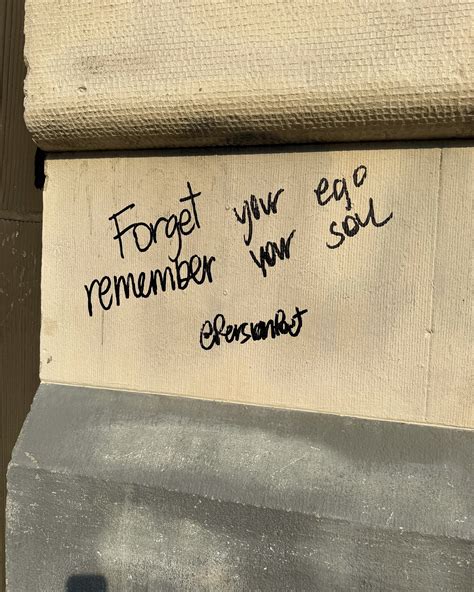 Forget your ego
remember your soul
@PersianPoet